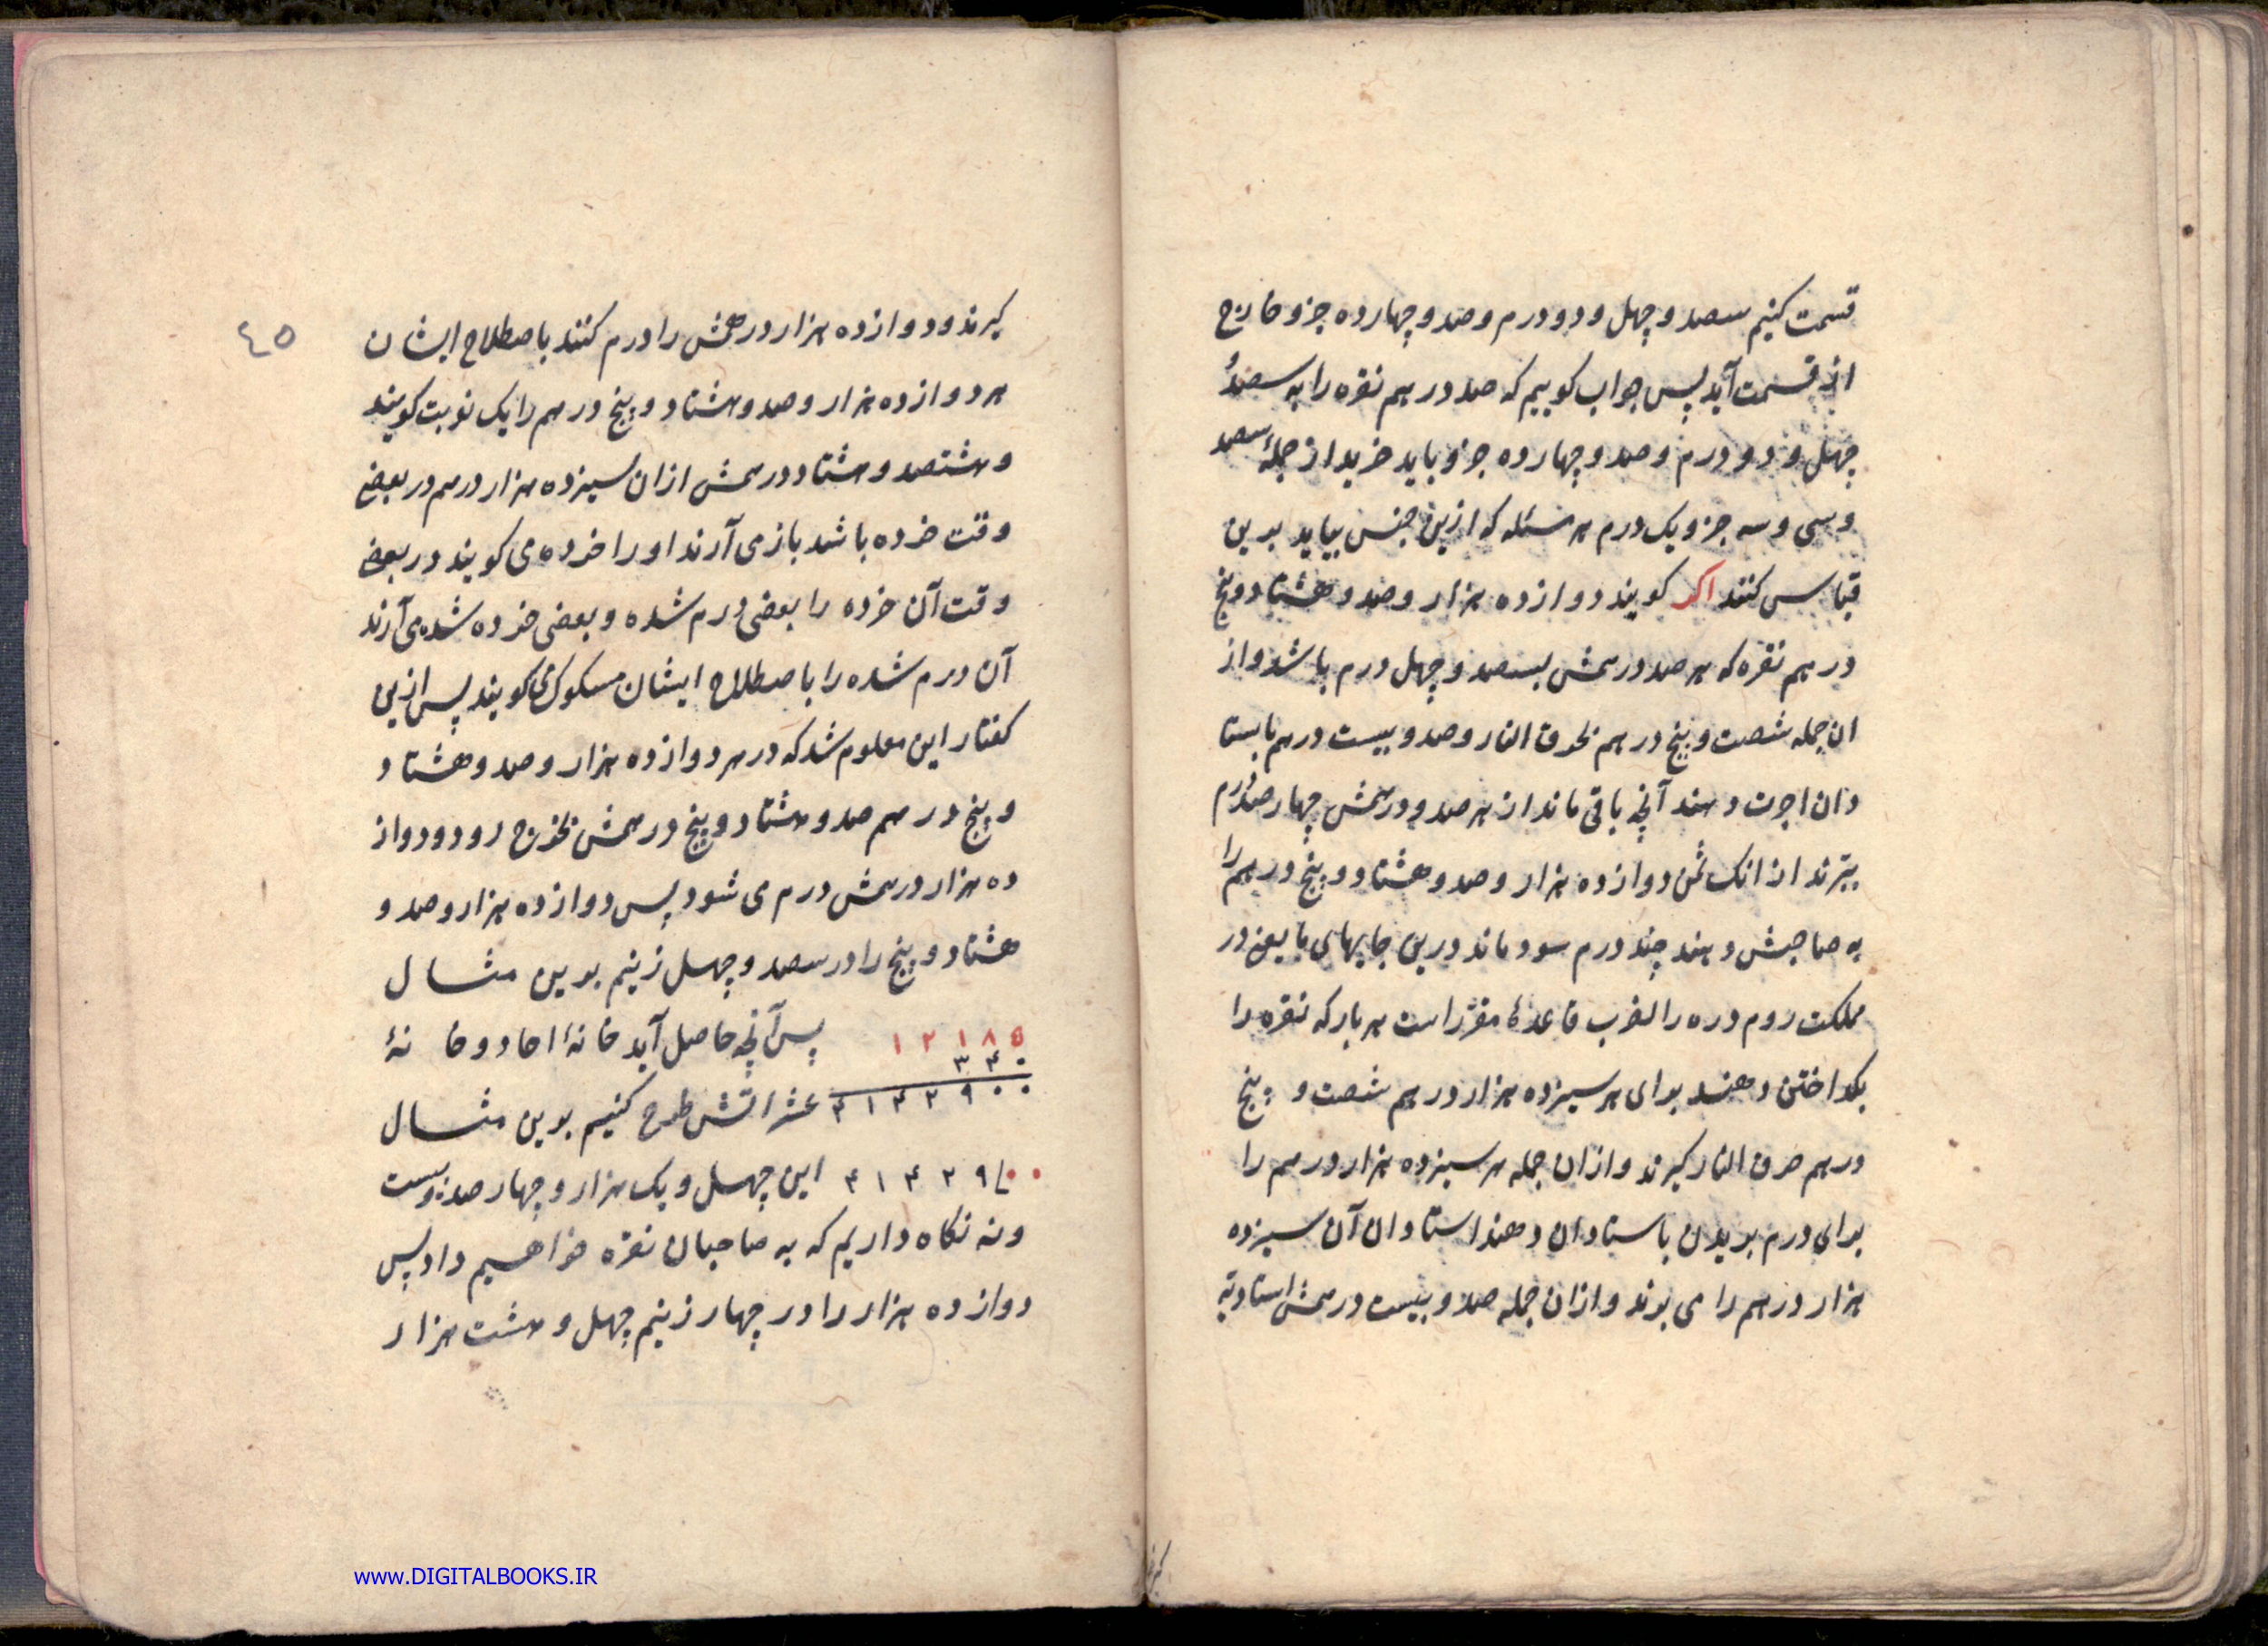 قسمت کنیم سصد و چهل و دو درم و صد و چهارده جزو خارج
از قسمت آید پس جواب کوییم که صد درهم نقره را به سصد
چهل و دو درم و صد و چهارده جزو باید خرید از جملهٔ سصد
و سی و سه جزو یک درم هر مسئله که ازین جنس بیاید برین
قیاس کنند اکر کویند دوازده هزار و صد و هشتاد و پنج
درهم نقره که هر صد درهمش بسصد و چهل درم باشد و از
ان جمله شصت و پنج درهم بحرق النار و صد و بیست درهم باستا
دان اجرت دهند آنچه باقی ماند از هر صد و درهمش چهار صد درم
ببرند از انک ثمن دوازده هزار و صد و هشتاد و پنج درهم را
به صاحبش دهند چند درم سود ماند درین جایهای ما یعنی در
مملکت روم دره را لغرب قاعدهٔ مقرّر است هر بار که نقره را
بکداختن دهند برای هر سیزده هزار درهم شصت و پنج
درهم حرق النار کیرند و ازان جمله هر سیزده هزار درهم را
برای درم بریدن باستادان دهند استادان آن سیزده
هزار درهم را می برند و ازان جمله صد و بیست درهمش استادیّه
کیرند
کیرند و دوازده هزار درهمش را درم کنند باصطلاح ایشان
هر دوازده هزار و صد و هشتاد و پنج درهم را یک نوبت کویند
و هشتصد و هشتاد درهمش ازان سیزده هزار درهم در بعضی
وقت خرده باشد باز می آرند او را خرده می کویند در بعضی
وقت آن خرده را بعضی درم شده و بعضی خرده شده می آرند
آن درم شده را باصطلاح ایشان مسکوک می کویند پس ازین
کفتار این معلوم شد که در هر دوازده هزار و صد و هشتاد
و پنج درهم صد و هشتاد و پنج درهمش بخرج رود و دواز
ده هزار درهمش درم می شود پس دوازده هزار و صد و
هشتاد و پنج را در سصد و چهل زنیم برین مثال
۱۲۱۸۵ پس آنچه حاصل آید خانهٔ احاد و خانهٔ
۳۴۰
۴۱۴۲۹۰۰ عشراتش طرح کنیم برین مثال
۴۱۴۲۹۰۰ این چهل و یک هزار و چهار صد و بیست
و نه نکاه داریم که به صاحبان نقره خواهیم داد پس
دوازده هزار را در چهار زنیم چهل و هشت هزار
٤٥
www.DIGITALBOOKS.IR